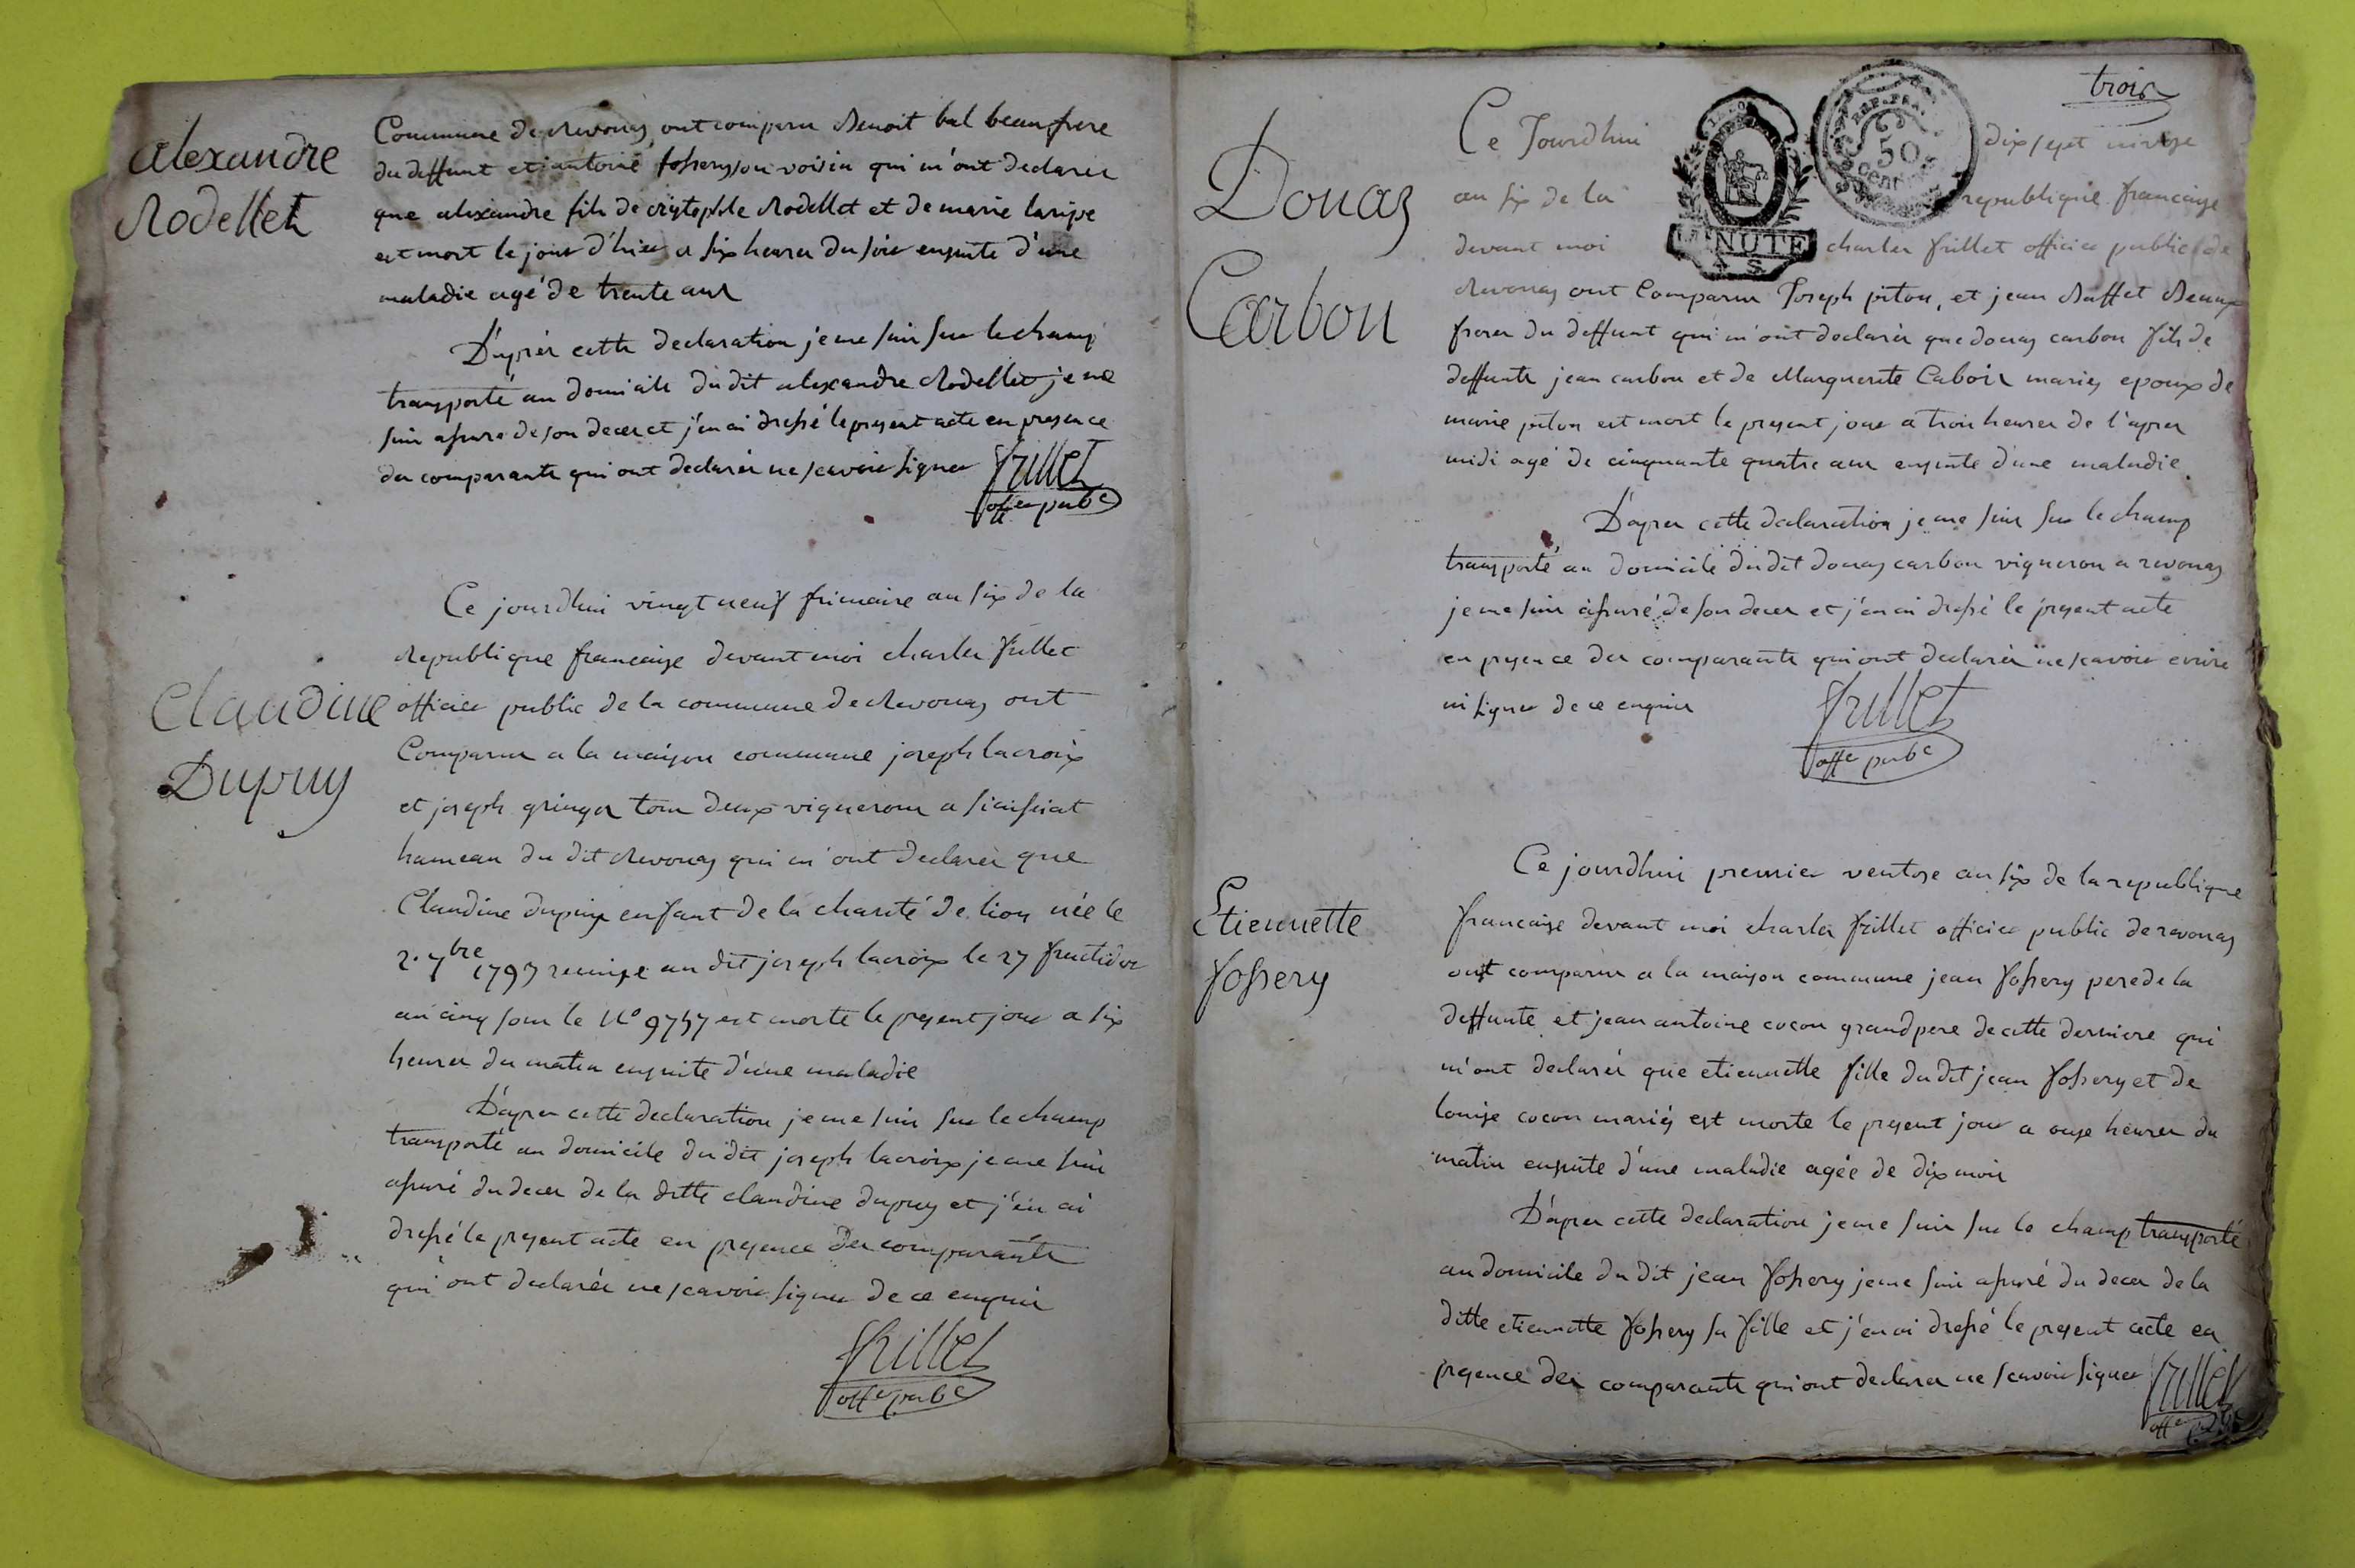 alexandre
Rodellet
Commune de Revonas, ont comparu Benoit bal beaufrere
du deffunt et antoine fossery son voisin qui m'ont declarer
que alexandre fils de cristophle Rodellet et de marie
est mort le jour d'hier a six heures du soir ensuite d'une
maladie agé de trente ans
D'aprés cette declaration je me suis sur le champ
transporté au domicile du dit alexandre Rodellet je me
suis assuré de son deces et j'en ai dressé le present acte en presence
des comparants qui ont declarés ne scavoir signer frillet
offer pubc
Claudine
Dupuy
Ce jourdhui vingt neuf frimaire an six de la
Republique francaise devant moi charles frillet
officier public de la commune de Revonas ont
Comparu a la maison commune joseph lacroix
et joseph tous deux vignerons a
hameau du dit Revonas qui m'ont declarés que
Claudine dupuy enfant de la charité de lion née le
2. 7bre 1797 remise au dit joseph lacroix le 27 fructidor
an cinq sous le No 9757 est morte le present jour a six
heures du matin ensuite d'une maladie
D'apres cette declaration je me suis sur le champ
transporté au domicile du dit joseph lacroix je me suis
assuré du deces de la ditte claudine dupuy et j'en ai
dressé le present acte en presence des comparants
qui ont declarés ne scavoir signer de ce enquis
frillet
offer pubc
trois
Douas
Carbon
Ce Jourdhui dix sept nivose
an six de la republique francaise
devant moi charles frillet officier public de
Revonas ont Comparu Joseph piton, et jean Buffet Beaux
freres du deffunt qui m'ont declarés que douas carbon fils de
deffunts jean carbon et de Marguerite Caboir mariés epoux de
marie piton est mort le present jour a trois heures de l'apres
midi agé de cinquante quatre ans ensuite d'une maladie.
D'apres cette declaration je me suis sur le champ
transporté au domicile du dit douas carbon vigneron a revonas
je me suis assuré de son deces et j'en ai dressé le present acte
en presence des comparants qui ont declarés ne scavoir ecrire
ni signer de ce enquis
frillet
offer pubc
REP. FRA.
50
centimes
MINUTE
Etiennette
fossery
Ce jourdhui premier ventose an six de la republique
francaise devant moi charles frillet officier public de revonas
ont comparu a la maison commune jean fossery pere de la
deffunte et jean antoine cocon grand pere de cette derniere qui
m'ont declarés que etiennette fille du dit jean fossery et de
louise cocon mariés est morte le present jour a onze heures du
matin ensuite d'une maladie agée de dix mois
D'apres cette declaration je me suis sur le champ transporté
au domicile du dit jean fossery je me suis assuré du deces de la
ditte etiennette fossery sa fille et j'en ai dressé le present acte en
presence des comparants qui ont declarés ne scavoir signer frillet
offer